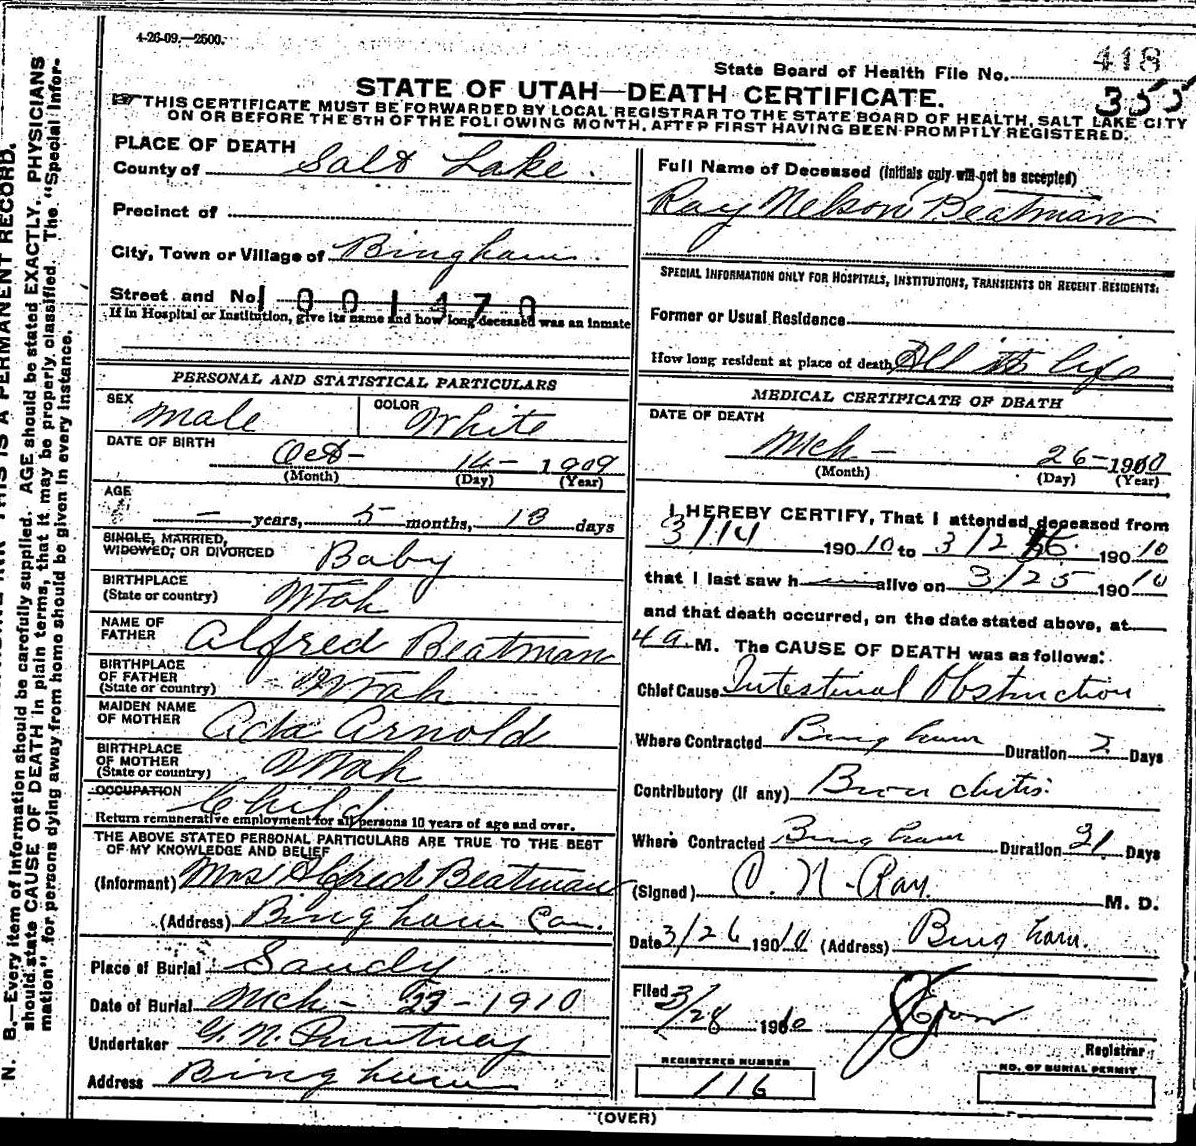 4-26-09.—2500.
State Board of Health File No. 418
STATE OF UTAH—DEATH CERTIFICATE. 355
THIS CERTIFICATE MUST BE FORWARDED BY LOCAL REGISTRAR TO THE STATE BOARD OF HEALTH, SALT LAKE CITY
ON OR BEFORE THE 5TH OF THE FOLLOWING MONTH, AFTER FIRST HAVING BEEN PROMPTLY REGISTERED.
PLACE OF DEATH
County of Salt Lake.
Precinct of
City, Town or Village of Bingham.
Street and No. 1001470
If in Hospital or Institution, give its name and how long deceased was an inmate
PERSONAL AND STATISTICAL PARTICULARS
SEX Male COLOR White
DATE OF BIRTH
Oct- 14- 1909
(Month) (Day) (Year)
AGE
- years, 5 months, 13 days
SINGLE, MARRIED,
WIDOWED, OR DIVORCED Baby
BIRTHPLACE
(State or country) Utah
NAME OF
FATHER Alfred Beatman
BIRTHPLACE
OF FATHER
(State or country) Utah
MAIDEN NAME
OF MOTHER Ada Arnold
BIRTHPLACE
OF MOTHER
(State or country) Utah
OCCUPATION Child
Return remunerative employment for all persons 10 years of age and over.
THE ABOVE STATED PERSONAL PARTICULARS ARE TRUE TO THE BEST
OF MY KNOWLEDGE AND BELIEF
(Informant) Mrs Alfred Beatman
(Address) Bingham Can.
Place of Burial Sandy
Date of Burial Mch- - 1910
Undertaker G. N.
Address Bingham
Full Name of Deceased (Initials only will not be accepted)
Ray Nelson Beatman
SPECIAL INFORMATION ONLY FOR HOSPITALS, INSTITUTIONS, TRANSIENTS OR RECENT RESIDENTS:
Former or Usual Residence
How long resident at place of death All its life
MEDICAL CERTIFICATE OF DEATH
DATE OF DEATH
Mch- 26-1910
(Month) (Day) (Year)
I HEREBY CERTIFY, That I attended deceased from
3/14 190 10 to 3/2 190 10
that I last saw h alive on 3/25 190 10
and that death occurred, on the date stated above, at
4 a M. The CAUSE OF DEATH was as follows:
Chief Cause Intestinal Obstruction
Where Contracted Bingham Duration 2 Days
Contributory (if any) Bronchitis.
Where Contracted Bingham Duration 21 Days
(Signed) C. N. Ray. M. D.
Date 3/26 190 10 (Address) Bingham.
Filed
3/28 1910
Registrar
REGISTERED NUMBER
116
NO. OF BURIAL PERMIT
(OVER)
THIS IS A PERMANENT RECORD.
N. B.—Every item of information should be carefully supplied. AGE should be stated EXACTLY. PHYSICIANS
should state CAUSE OF DEATH in plain terms, that it may be properly classified. The "Special Infor-
mation" for persons dying away from home should be given in every instance.